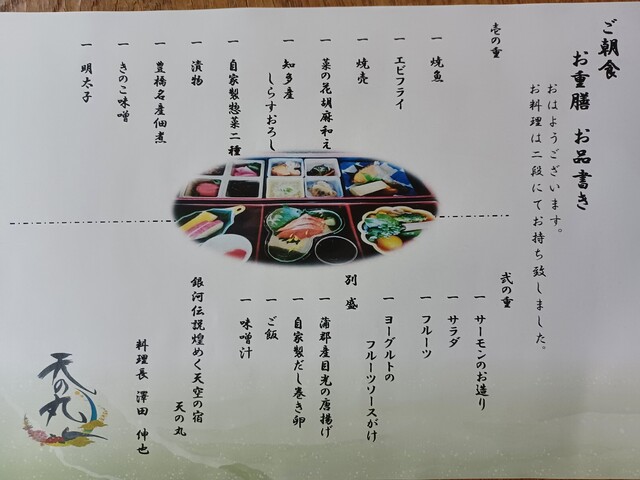 ご朝食
お重膳 お品書き
おはようございます。
お料理は二段にてお持ち致しました。
壱の重
一 焼魚
一 エビフライ
一 焼売
一 菜の花胡麻和え
一 知多産
しらすおろし
一 自家製惣菜二種
一 漬物
一 豊橋名産佃煮
一 きのこ味噌
一 明太子
弐の重
一 サーモンのお造り
一 サラダ
一 フルーツ
一 ヨーグルトの
フルーツソースがけ
別盛
一 蒲郡産目光の唐揚げ
一 自家製だし巻き卵
一 ご飯
一 味噌汁
銀河伝説煌めく天空の宿
天の丸
料理長 澤田 伸也
天の丸